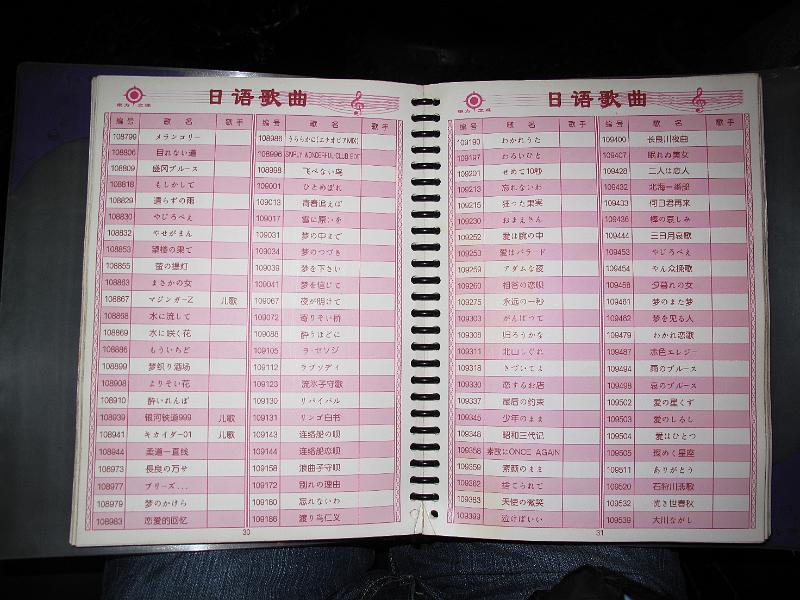 日语歌曲
编号 歌名 歌手 编号 歌名 歌手
108799 メランコリー
108806 目れない道
108809 盛冈ブルース
108818 もしかして
108829 遣らずの雨
108830 やじろべえ
108832 やせがまん
108853 望楼の果て
108855 萤の提灯
108863 まさかの女
108867 マジンガーZ 儿歌
108868 水に流して
108869 水に咲く花
108886 もういちど
108899 梦织り酒场
108908 よりそい花
108910 酔いれんぼ
108939 银河铁道999 儿歌
108941 キカイダー01 儿歌
108944 柔道一直线
108973 長良の万サ
108977 プリーズ...
108979 梦のかけら
108983 恋爱的回忆
108986 うららかに(エチオピアMIX)
108996 SIMPLY WONDERFUL CLUB EDIT
108998 飞べない鸟
109001 ひとめぼれ
109013 青春追えば
109017 雪に愿いを
109031 梦の中まで
109034 梦のつづき
109039 梦を下さい
109041 梦を信じて
109067 夜が明けて
109072 寄りそい桥
109088 酔うほどに
109105 ラ·セゾン
109112 ラプソディ
109123 流氷子守歌
109130 リバイバル
109131 リンゴ白书
109143 连络船の呗
109144 连络船恋呗
109158 浪曲子守呗
109172 别れの理由
109180 忘れないわ
109186 渡り鸟仁义
30
日语歌曲
编号 歌名 歌手 编号 歌名 歌手
109190 わかれうた
109197 わるいひと
109201 せめて10秒
109213 忘れないわ
109215 狂った果实
109230 おまえさん
109252 爱は腕の中
109253 爱はバラード
109259 アダムな夜
109260 祖谷の恋呗
109275 永远の一秒
109303 がんばって
109308 归ろうかな
109311 北山しぐれ
109318 きづいてよ
109330 恋するお店
109337 最后の约束
109345 少年のまま
109348 昭和三代记
109358 素敌にONCE AGAIN
109359 素颜のまま
109382 捨てられて
109383 天使の微笑
109399 泣けばいい
109400 长良川夜曲
109407 眠れぬ美女
109428 二人は恋人
109432 北海一番船
109433 何日君再来
109436 棒の哀しみ
109444 三日月哀歌
109453 やじろべえ
109454 やん众挽歌
109458 夕暮れの女
109461 梦のまた梦
109462 梦を见る人
109479 わかれ恋歌
109487 赤色エレジー
109494 雨のブルース
109498 哀のブルース
109502 爱の星くず
109503 爱のしるし
109504 爱はひとつ
109505 煌めく星座
109511 ありがとう
109520 石狩川挽歌
109532 流き世春秋
109539 大川ながし
31